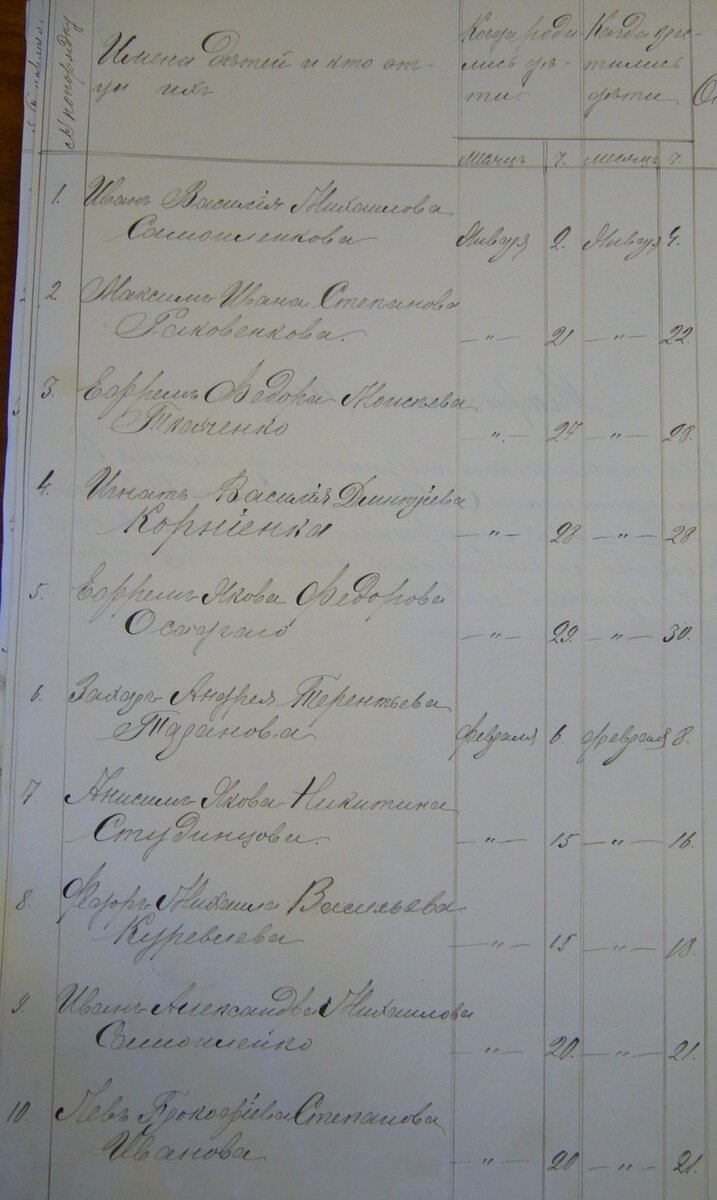 № по порядку.
Имена дѣтей и кто от-
цы ихъ
Когда роди-
лись дѣ-
ти.
Когда кре-
тились
дѣти
мѣсяцъ ч. мѣсяцъ ч.
1. Иванъ Василія Михаилова
Самойленкова Января 2. Января 4.
2. Максимъ Ивана Степанова
Раковенкова. —"— 21 —"— 22.
3. Ефремъ Федора Моисѣева
Ткаченко —"— 27 —"— 28.
4. Игнатъ Василія Дмитріева
Корніенка —"— 28 —"— 28
5. Ефремъ Якова Федорова
—"— 29. —"— 30.
6. Захаръ Андрея Терентьева
Таранова Февраля 6. Февраля 8.
7. Анисимъ Якова Никитина
Студинцова. —"— 15 —"— 16.
8. Федоръ Михаила Васильева
—"— 15 —"— 18.
9. Иванъ Александра Михаилова
Самойлейко —"— 20. —"— 21.
10. Левъ Прокофіева Степанова
Иванова —"— 20 —"— 21.